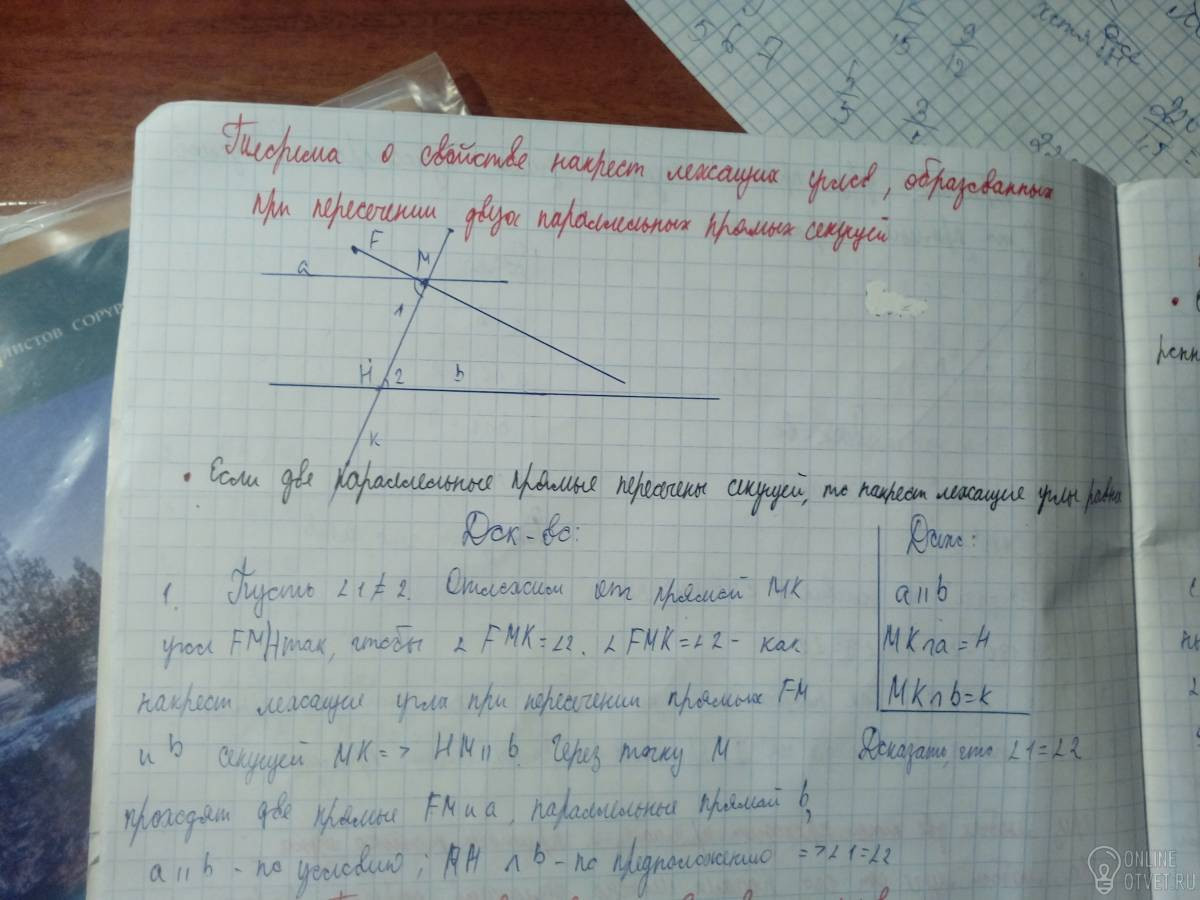 Теорема о свойстве накрест лежащих углов, образованных
при пересечении двух параллельных прямых секущей
F
M
a
1
H 2 b
K
• Если две параллельные прямые пересечены секущей, то накрест лежащие углы равны
Док-во:
1. Пусть ∠1≠2. Отложим от прямой МК
угол FMH так, чтобы ∠FMK=∠2. ∠FMK=∠2- как
накрест лежащие угла при пересечении прямых FM
и b секущей МК => HM || b. Через точку М
проходят две прямые FM и a, параллельные прямой b,
a || b - по условию; ∩ b - по предположению => ∠1=∠2
Дано:
a || b
MK∩a = H
MK∩b=K
Доказать, что ∠1=∠2
5 6 7
15
9/12
3
ЛИСТОВ СОРУ
ONLINE
OTVET.RU